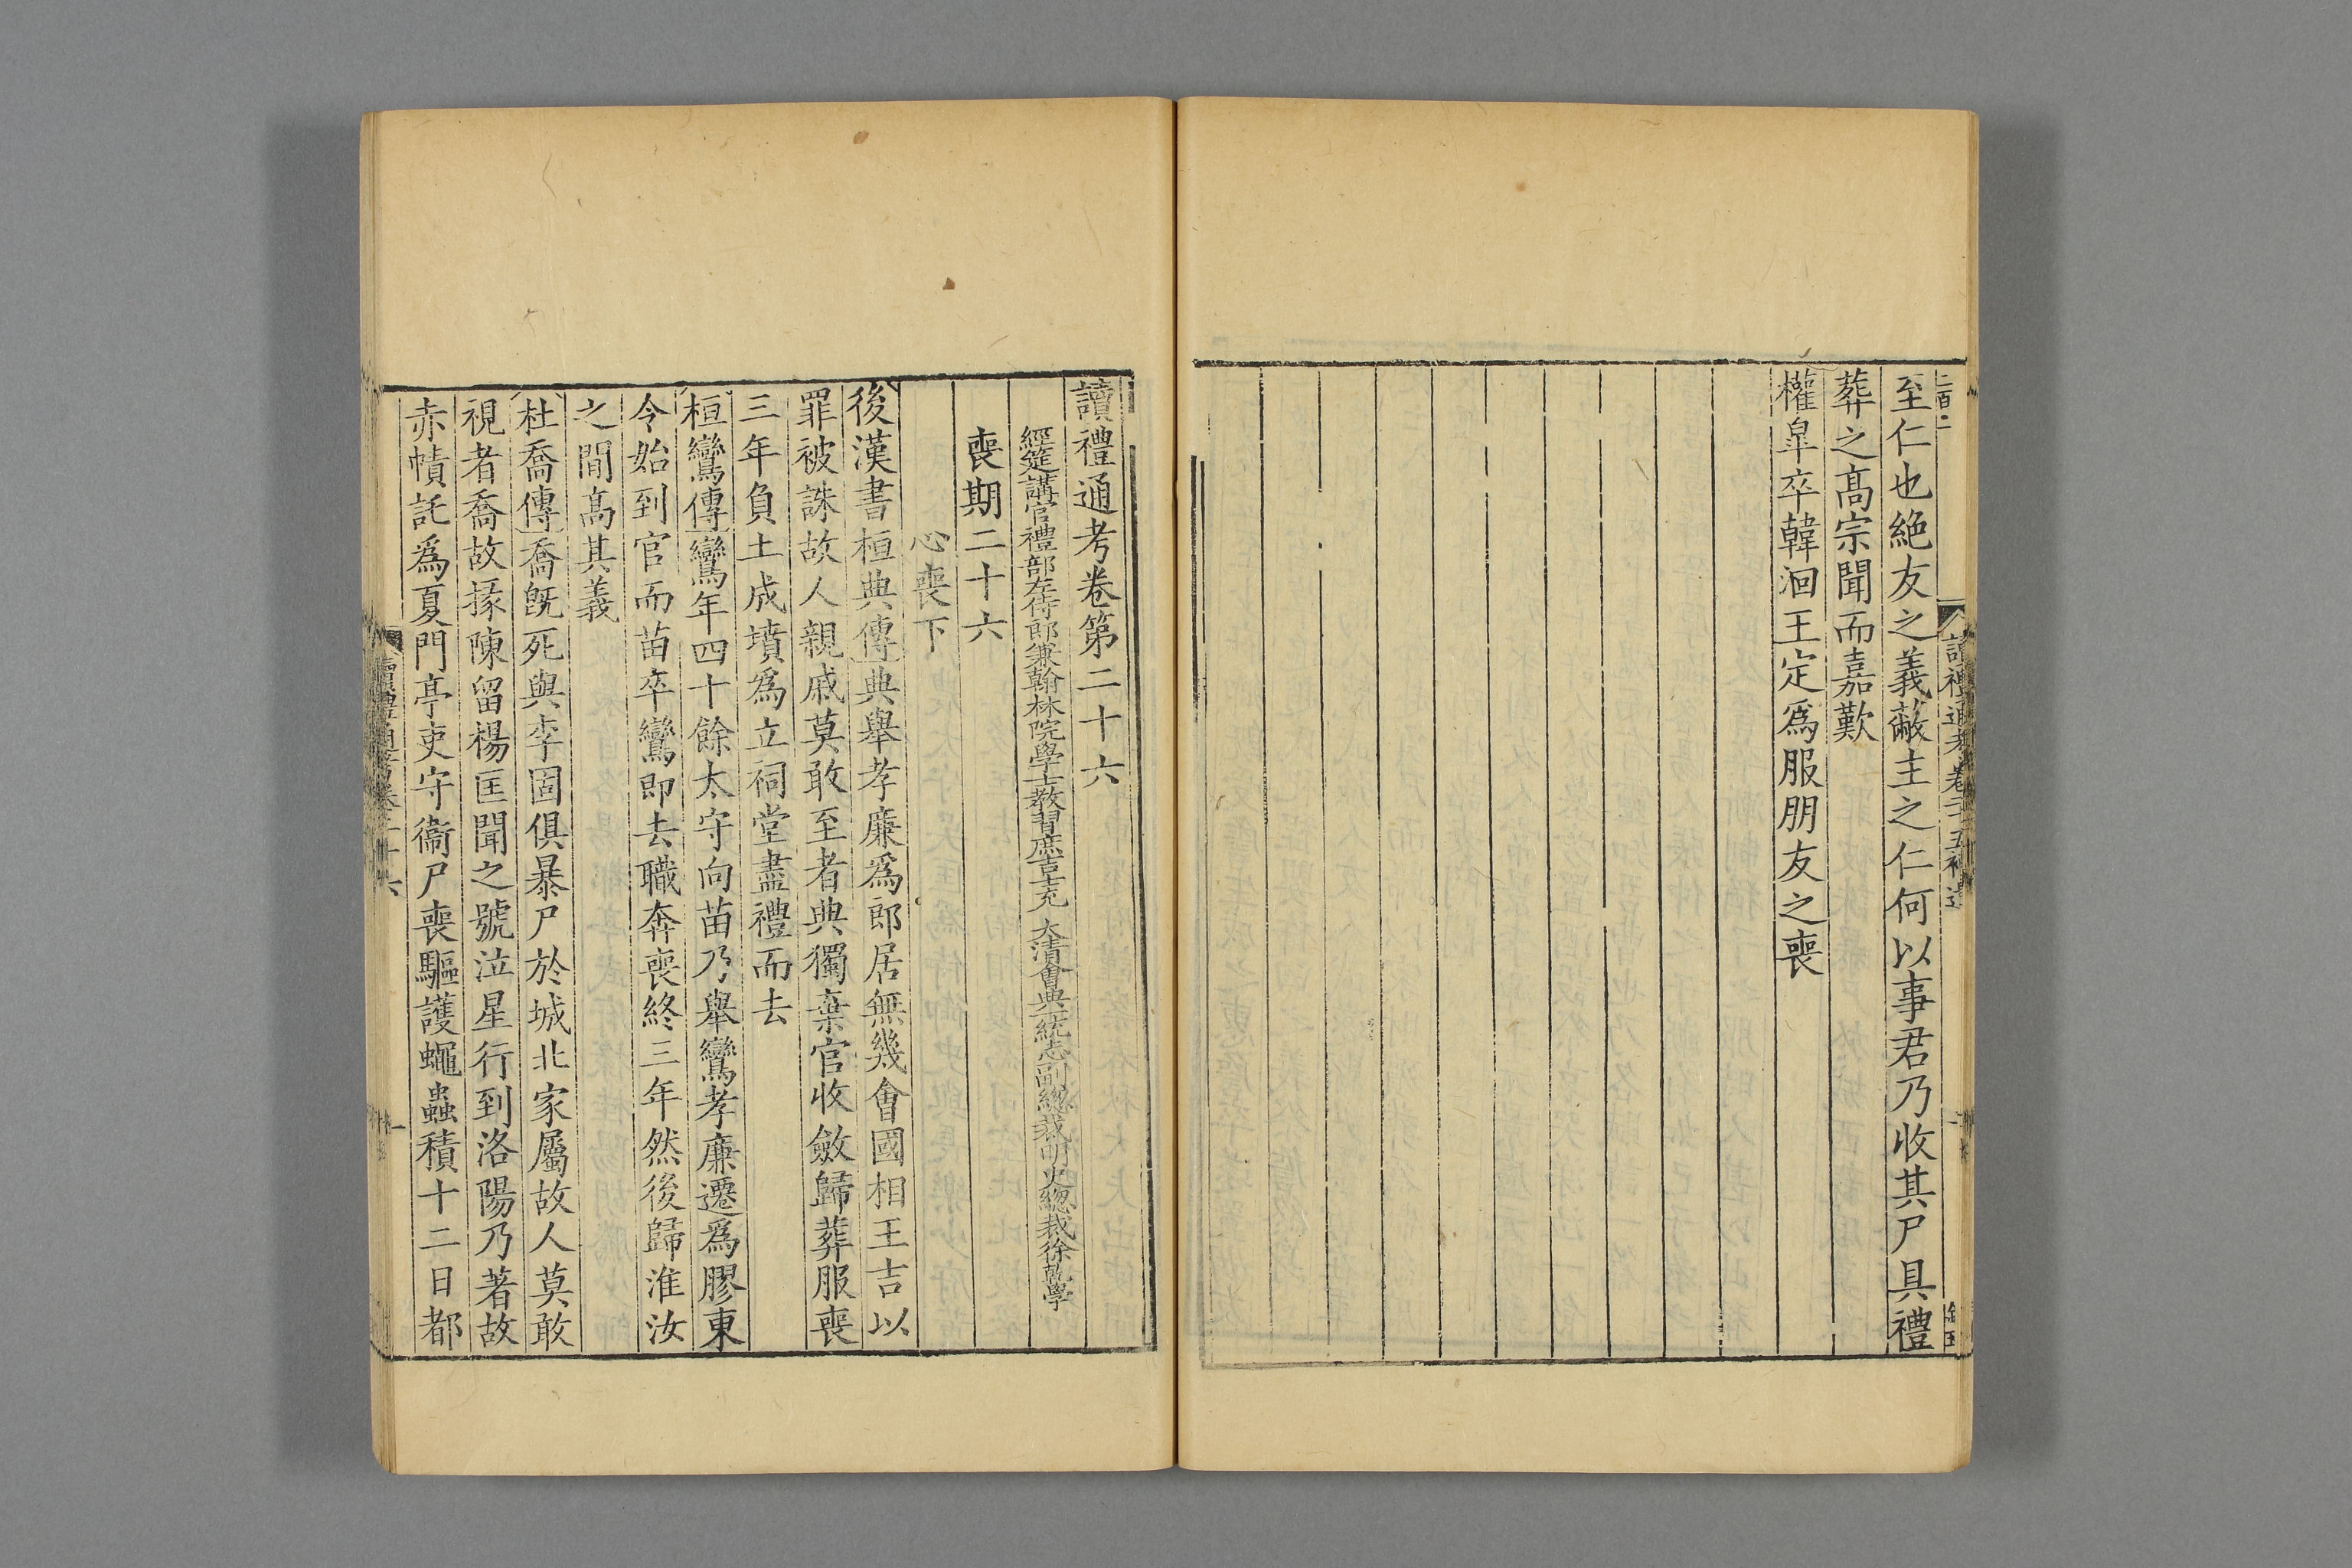 至仁也絶友之義蔽主之仁何以事君乃收其尸具禮
葬之髙宗聞而嘉歎
權臯卒韓洄王定爲服朋友之喪
讀禮通考卷第二十六
經筵講官禮部左侍郎兼翰林院學士教習庶吉士充 大清會典一統志副總裁明史總裁徐乾學
喪期二十六
心喪下
後漢書桓典傳典舉孝廉爲郎居無幾會國相王吉以
罪被誅故人親戚莫敢至者典獨棄官收斂歸葬服喪
三年負土成墳爲立祠堂盡禮而去
桓鸞傳鸞年四十餘太守向苗乃舉鸞孝廉遷爲膠東
令始到官而苗卒鸞即去職奔喪終三年然後歸淮汝
之間髙其義
杜喬傳喬旣死與李固俱暴尸於城北家屬故人莫敢
視者喬故掾陳留楊匡聞之號泣星行到洛陽乃著故
赤幘託爲夏門亭吏守衞尸喪驅護蠅蟲積十二日都
讀禮通考卷二十六
一